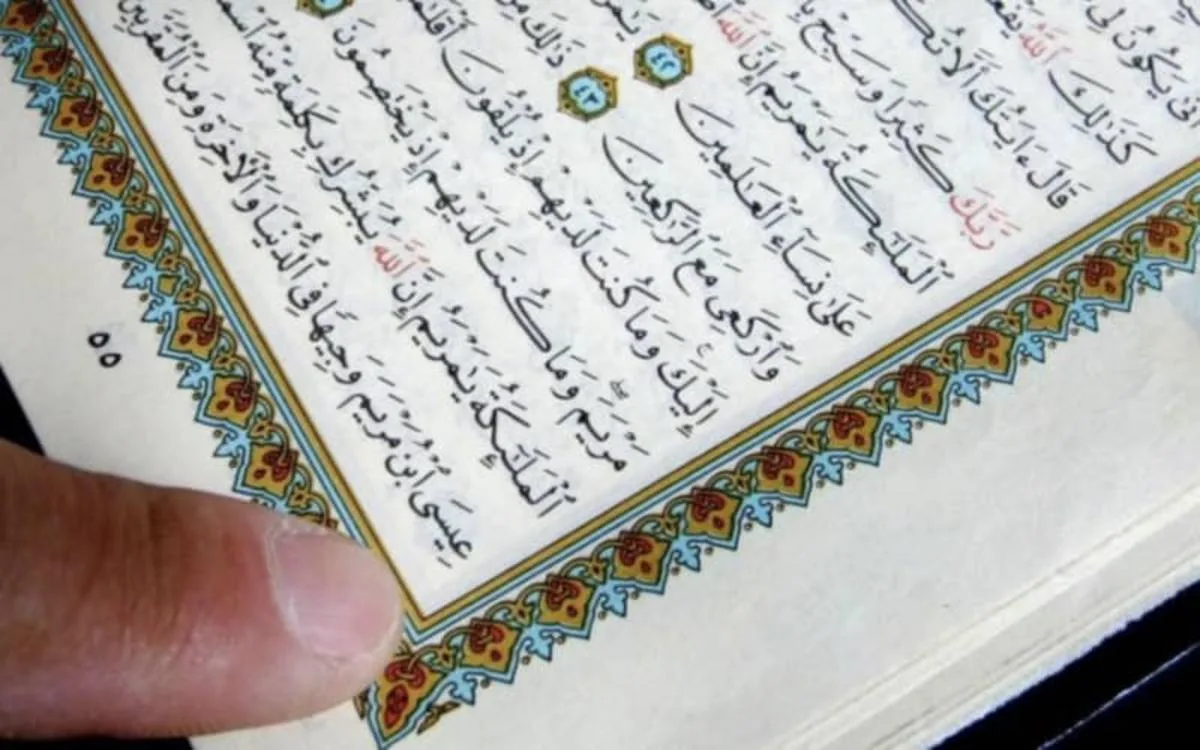 يَكُونُ لِى
كَذَٰلِكَ ٱللَّهُ
قَالَ ءَايَتُكَ أَلَّا
رَّبَّكَ كَثِيرًا وَسَبِّحْ
ٱلْمَلَٰٓئِكَةُ يَٰمَرْيَمُ إِنَّ ٱللَّهَ
عَلَىٰ نِسَآءِ ٱلْعَٰلَمِينَ ٤٢
وَٱرْكَعِى مَعَ ٱلرَّٰكِعِينَ ٤٣ ذَٰلِكَ مِنْ
إِلَيْكَ وَمَا كُنتَ لَدَيْهِمْ إِذْ يُلْقُونَ
مَرْيَمَ وَمَا كُنتَ لَدَيْهِمْ إِذْ يَخْتَصِمُونَ
ٱلْمَلَٰٓئِكَةُ يَٰمَرْيَمُ إِنَّ ٱللَّهَ يُبَشِّرُكِ بِكَلِمَةٍ مِّنْهُ
عِيسَى ٱبْنُ مَرْيَمَ وَجِيهًا فِى ٱلدُّنْيَا وَٱلْءَاخِرَةِ وَمِنَ ٱلْمُقَرَّبِينَ
٥٥